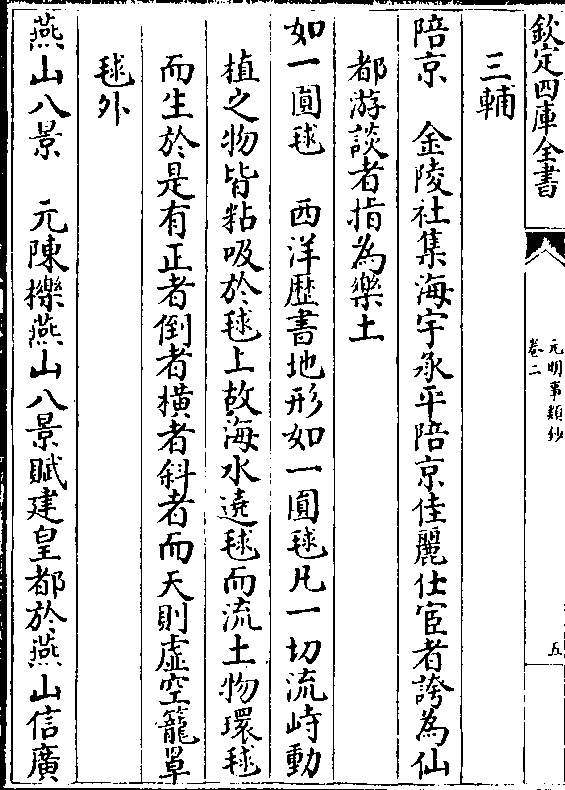 欽定四庫全書
元明事類鈔
卷二
五
三輔
陪京　金陵社集海宇承平陪京佳麗仕宦者誇為仙
都游談者指為樂土
如一圓毬　西洋歴書地形如一圓毬凡一切流峙動
植之物皆粘吸於毬上故海水遶毬而流土物環毬
而生於是有正者倒者橫者斜者而天則虛空籠罩
毬外
燕山八景　元陳櫟燕山八景賦建皇都於燕山信廣